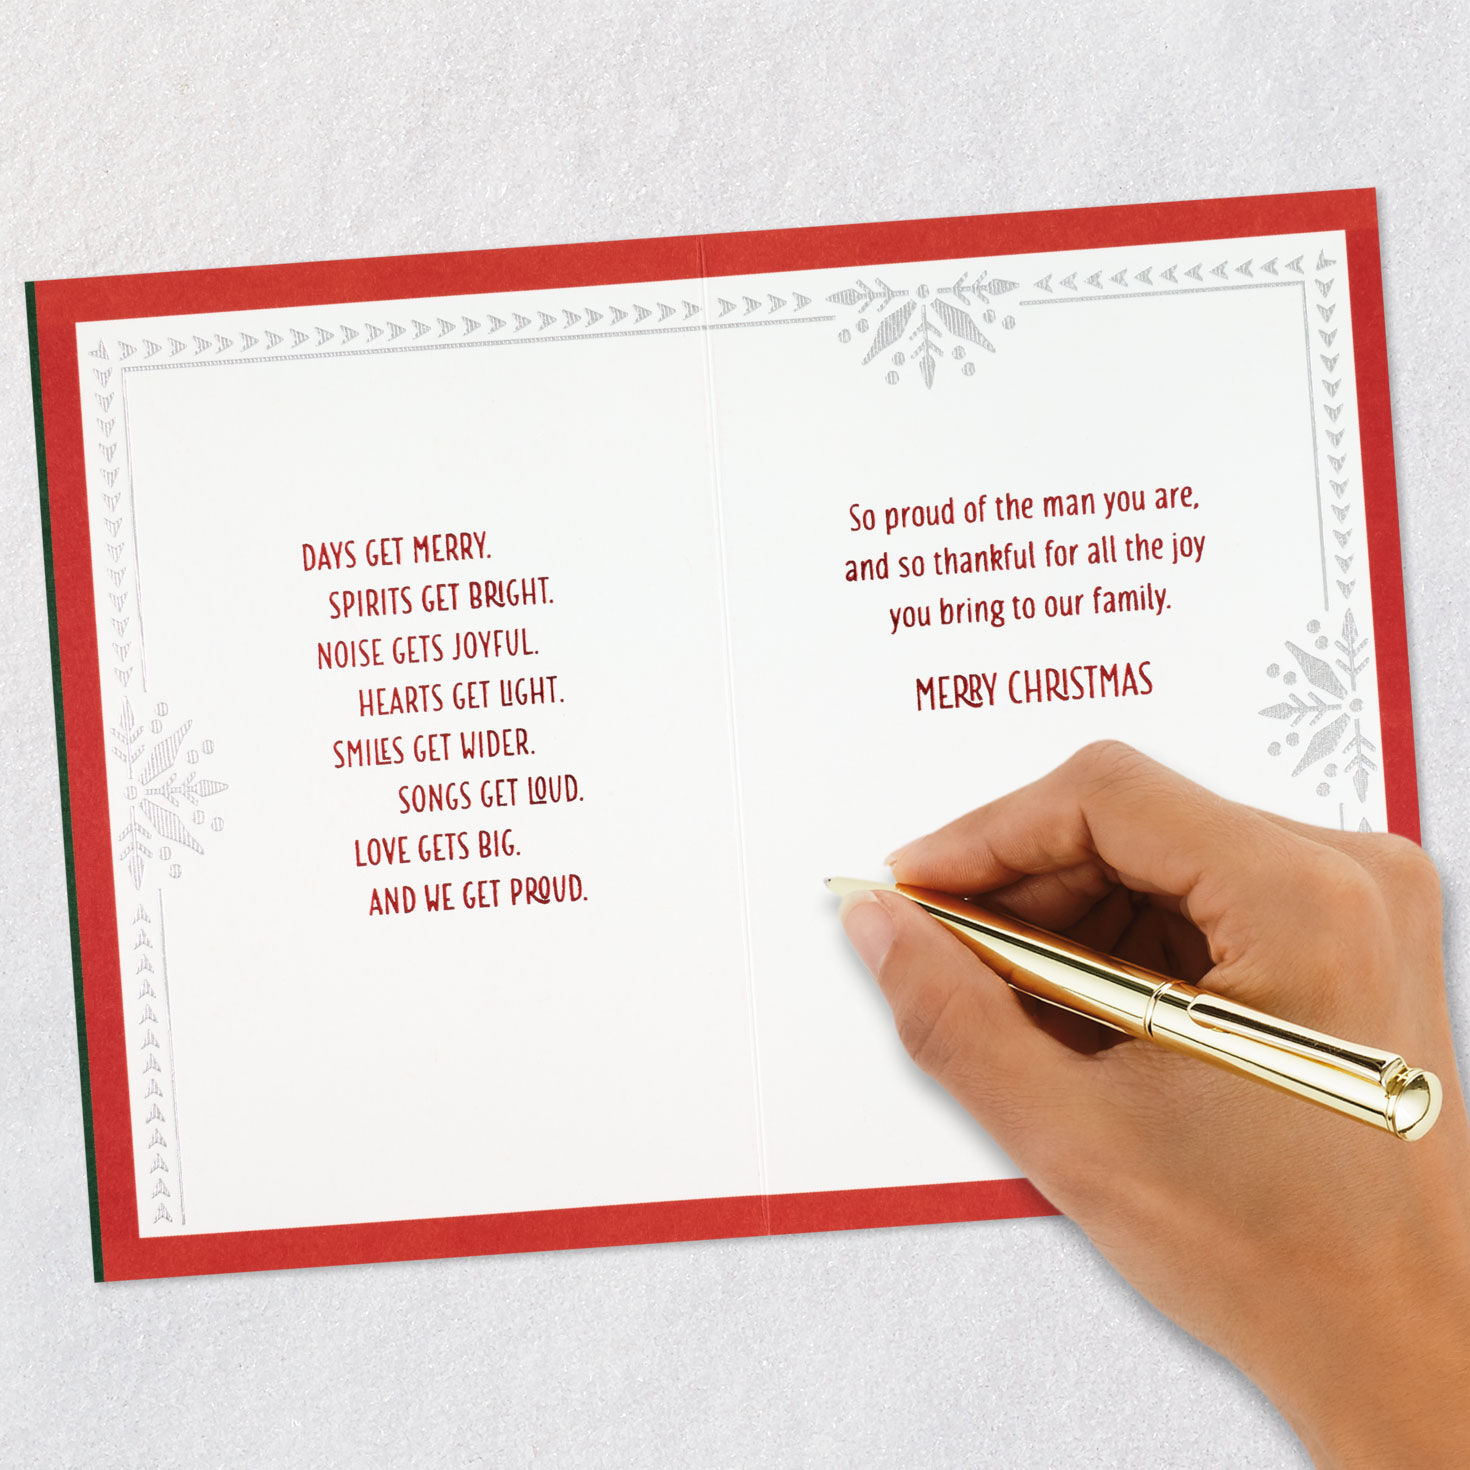 DAYS GET MERRY.
SPIRITS GET BRIGHT.
NOISE GETS JOYFUL.
HEARTS GET LIGHT.
SMILES GET WIDER.
SONGS GET LOUD.
LOVE GETS BIG.
AND WE GET PROUD.
So proud of the man you are,
and so thankful for all the joy
you bring to our family.
MERRY CHRISTMAS